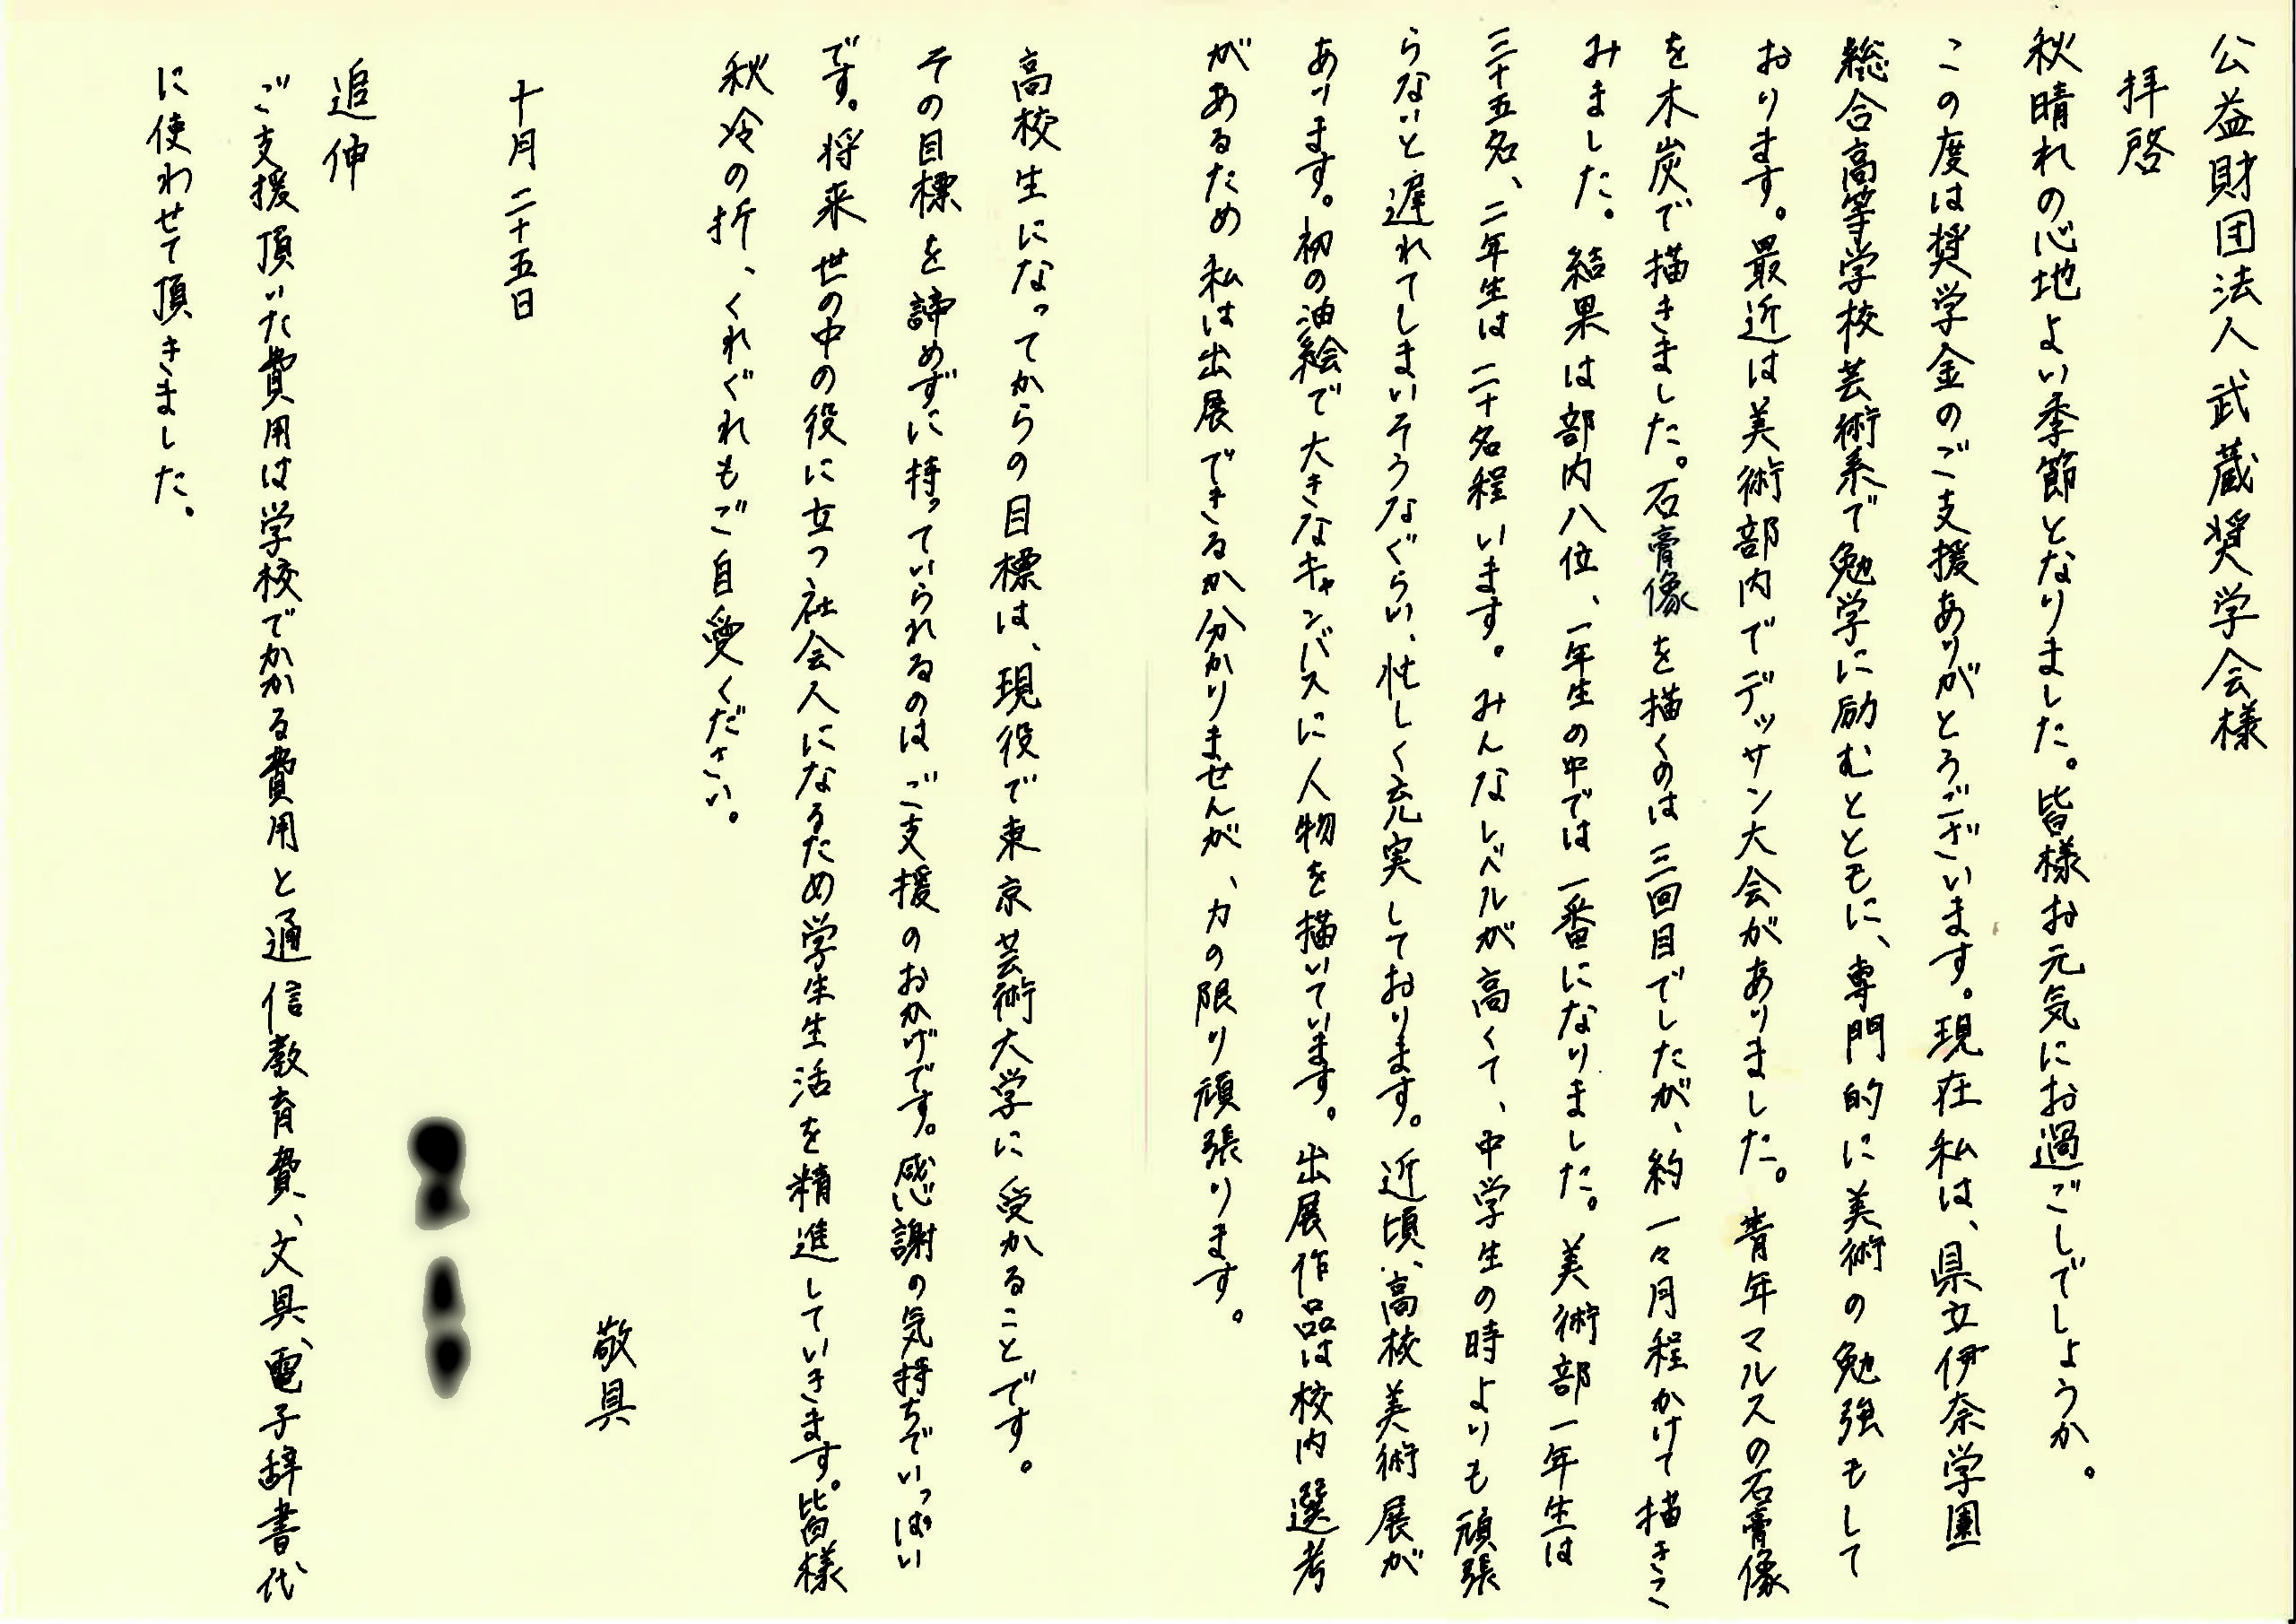 公益財団法人武蔵奨学会様
拝啓
秋晴れの心地よい季節となりました。皆様お元気にお過ごしでしょうか。
この度は奨学金のご支援ありがとうございます。現在私は、県立伊奈学園
総合高等学校芸術系で勉学に励むとともに、専門的に美術の勉強もして
おります。最近は美術部内でデッサン大会がありました。青年マルスの石膏像
を木炭で描きました。石膏像を描くのは三回目でしたが、約一々月程かけて描きこ
みました。結果は部内八位、一年生の中では一番になりました。美術部一年生は
三十五名、二年生は二十名程います。みんなレベルが高くて、中学生の時よりも頑張
らないと遅れてしまいそうなぐらい、忙しく充実しております。近頃、高校美術展が
あります。初の油絵で大きなキャンバスに人物を描いています。出展作品は校内選考
があるため私は出展できるか分かりませんが、力の限り頑張ります。
高校生になってからの目標は、現役で東京芸術大学に受かることです。
その目標を諦めずに持っていられるのはご支援のおかげです。感謝の気持ちでいっぱい
です。将来世の中の役に立つ社会人になるため学生生活を精進していきます。皆様
秋冷の折、くれぐれもご自愛ください。
敬具
十月二十五日
追伸
ご支援頂いた費用は学校でかかる費用と通信教育費、文具、電子辞書代
に使わせて頂きました。